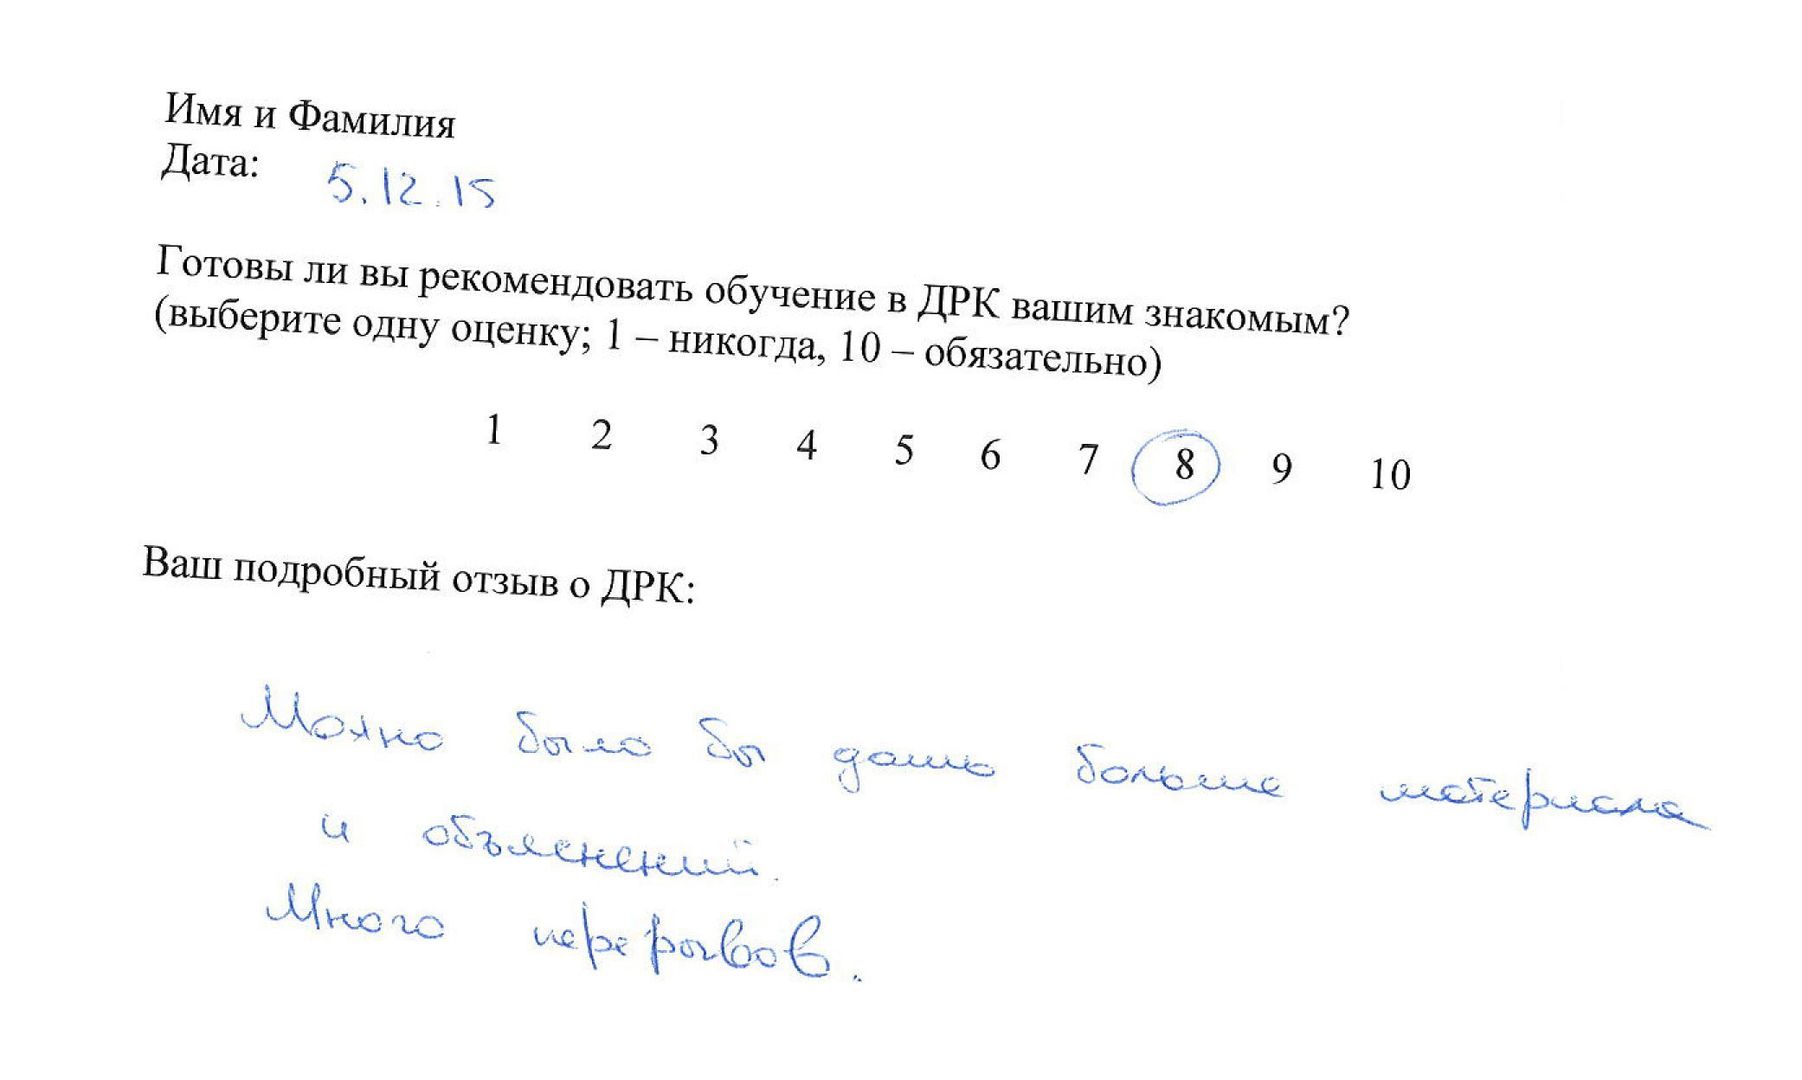 Имя и Фамилия
Дата: 5.12.15
Готовы ли вы рекомендовать обучение в ДРК вашим знакомым?
(выберите одну оценку; 1 – никогда, 10 – обязательно)
1 2 3 4 5 6 7 8 9 10
Ваш подробный отзыв о ДРК:
Можно было бы дать больше материала
и объяснений.
Много перерывов.